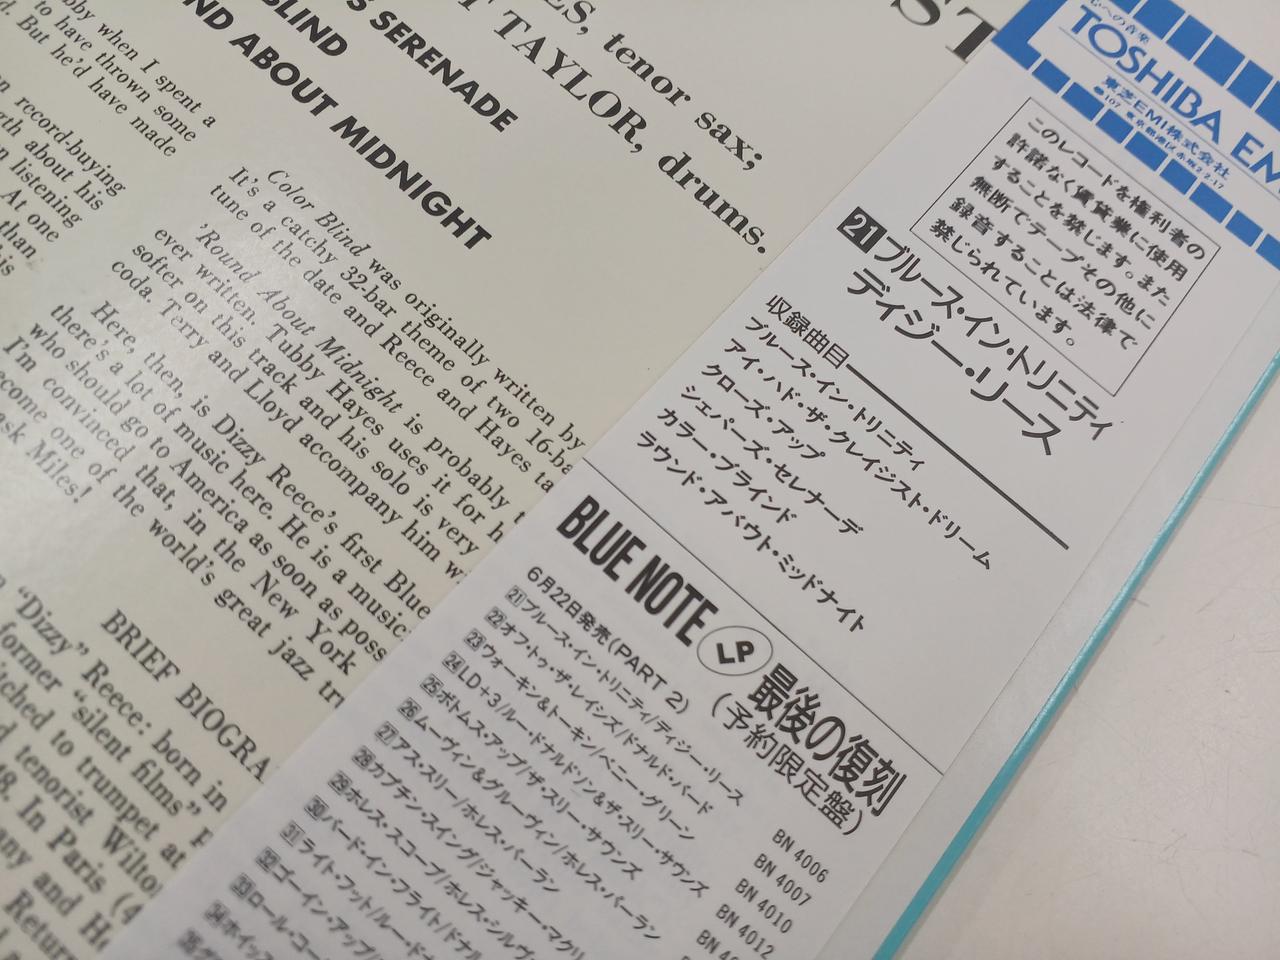 ST
ES, tenor sax;
T TAYLOR, drums.
S SERENADE
BLIND
ND ABOUT MIDNIGHT
bby when I spent a
to have thrown some
d. But he'd have made
n record-buying
rth about his
n listening
At one
than
his
Color Blind was originally written by
It's a catchy 32-bar theme of two 16-ba
tune of the date and Reece and Hayes ta
'Round About Midnight is probably t
ever written. Tubby Hayes uses it for h
softer on this track and his solo is very
coda. Terry and Lloyd accompany him w
Here, then, is Dizzy Reece's first Blue
there's a lot of music here. He is a music
who should go to America as soon as poss
I'm convinced that, in the New York
ecome one of the world's great jazz tr
ask Miles!
BRIEF BIOGRA
"Dizzy" Reece: born in
former "silent films" p
tched to trumpet at
d tenorist Wilto
8. In Paris (4
any and Ho
Return
心への音楽
TOSHIBA EM
東芝EMI株式会社
●107 東京都港区赤坂2-2-17
このレコードを権利者の
許諾なく賃貸業に使用
することを禁じます。また
無断でテープその他に
録音することは法律で
禁じられています。
21 ブルース・イン・トリニティ
ディジー・リース
収録曲目
ブルース・イン・トリニティ
アイ・ハド・ザ・クレイジスト・ドリーム
クローズ・アップ
シェパーズ・セレナーデ
カラー・ブラインド
ラウンド・アバウト・ミッドナイト
BLUE NOTE LP 最後の復刻
(予約限定盤)
6月22日発売(PART 2)
21 ブルース・イン・トリニティ/ディジー・リース BN 4006
22 オフ・トゥ・ザ・レイシズ/ドナルド・バード BN 4007
23 ウォーキン&トーキン/ベニー・グリーン BN 4010
24 LD+3/ルー・ドナルドソン&ザ・スリー・サウンズ BN 4012
25 ボトムス・アップ/ザ・スリー・サウンズ BN 4
26 ムーヴィン&グルーヴィン/ホレス・パーラン
27 アス・スリー/ホレス・パーラン
28 カプチン・スイング/ジャッキー・マクリ
29 ホレス・スコープ/ホレス・シルヴ
30 バード・イン・フライト/ドナル
31 ライト・フット/ルー・ド
32 ゴーイン・アップ/
33 ロール・コー
34 ホイッ